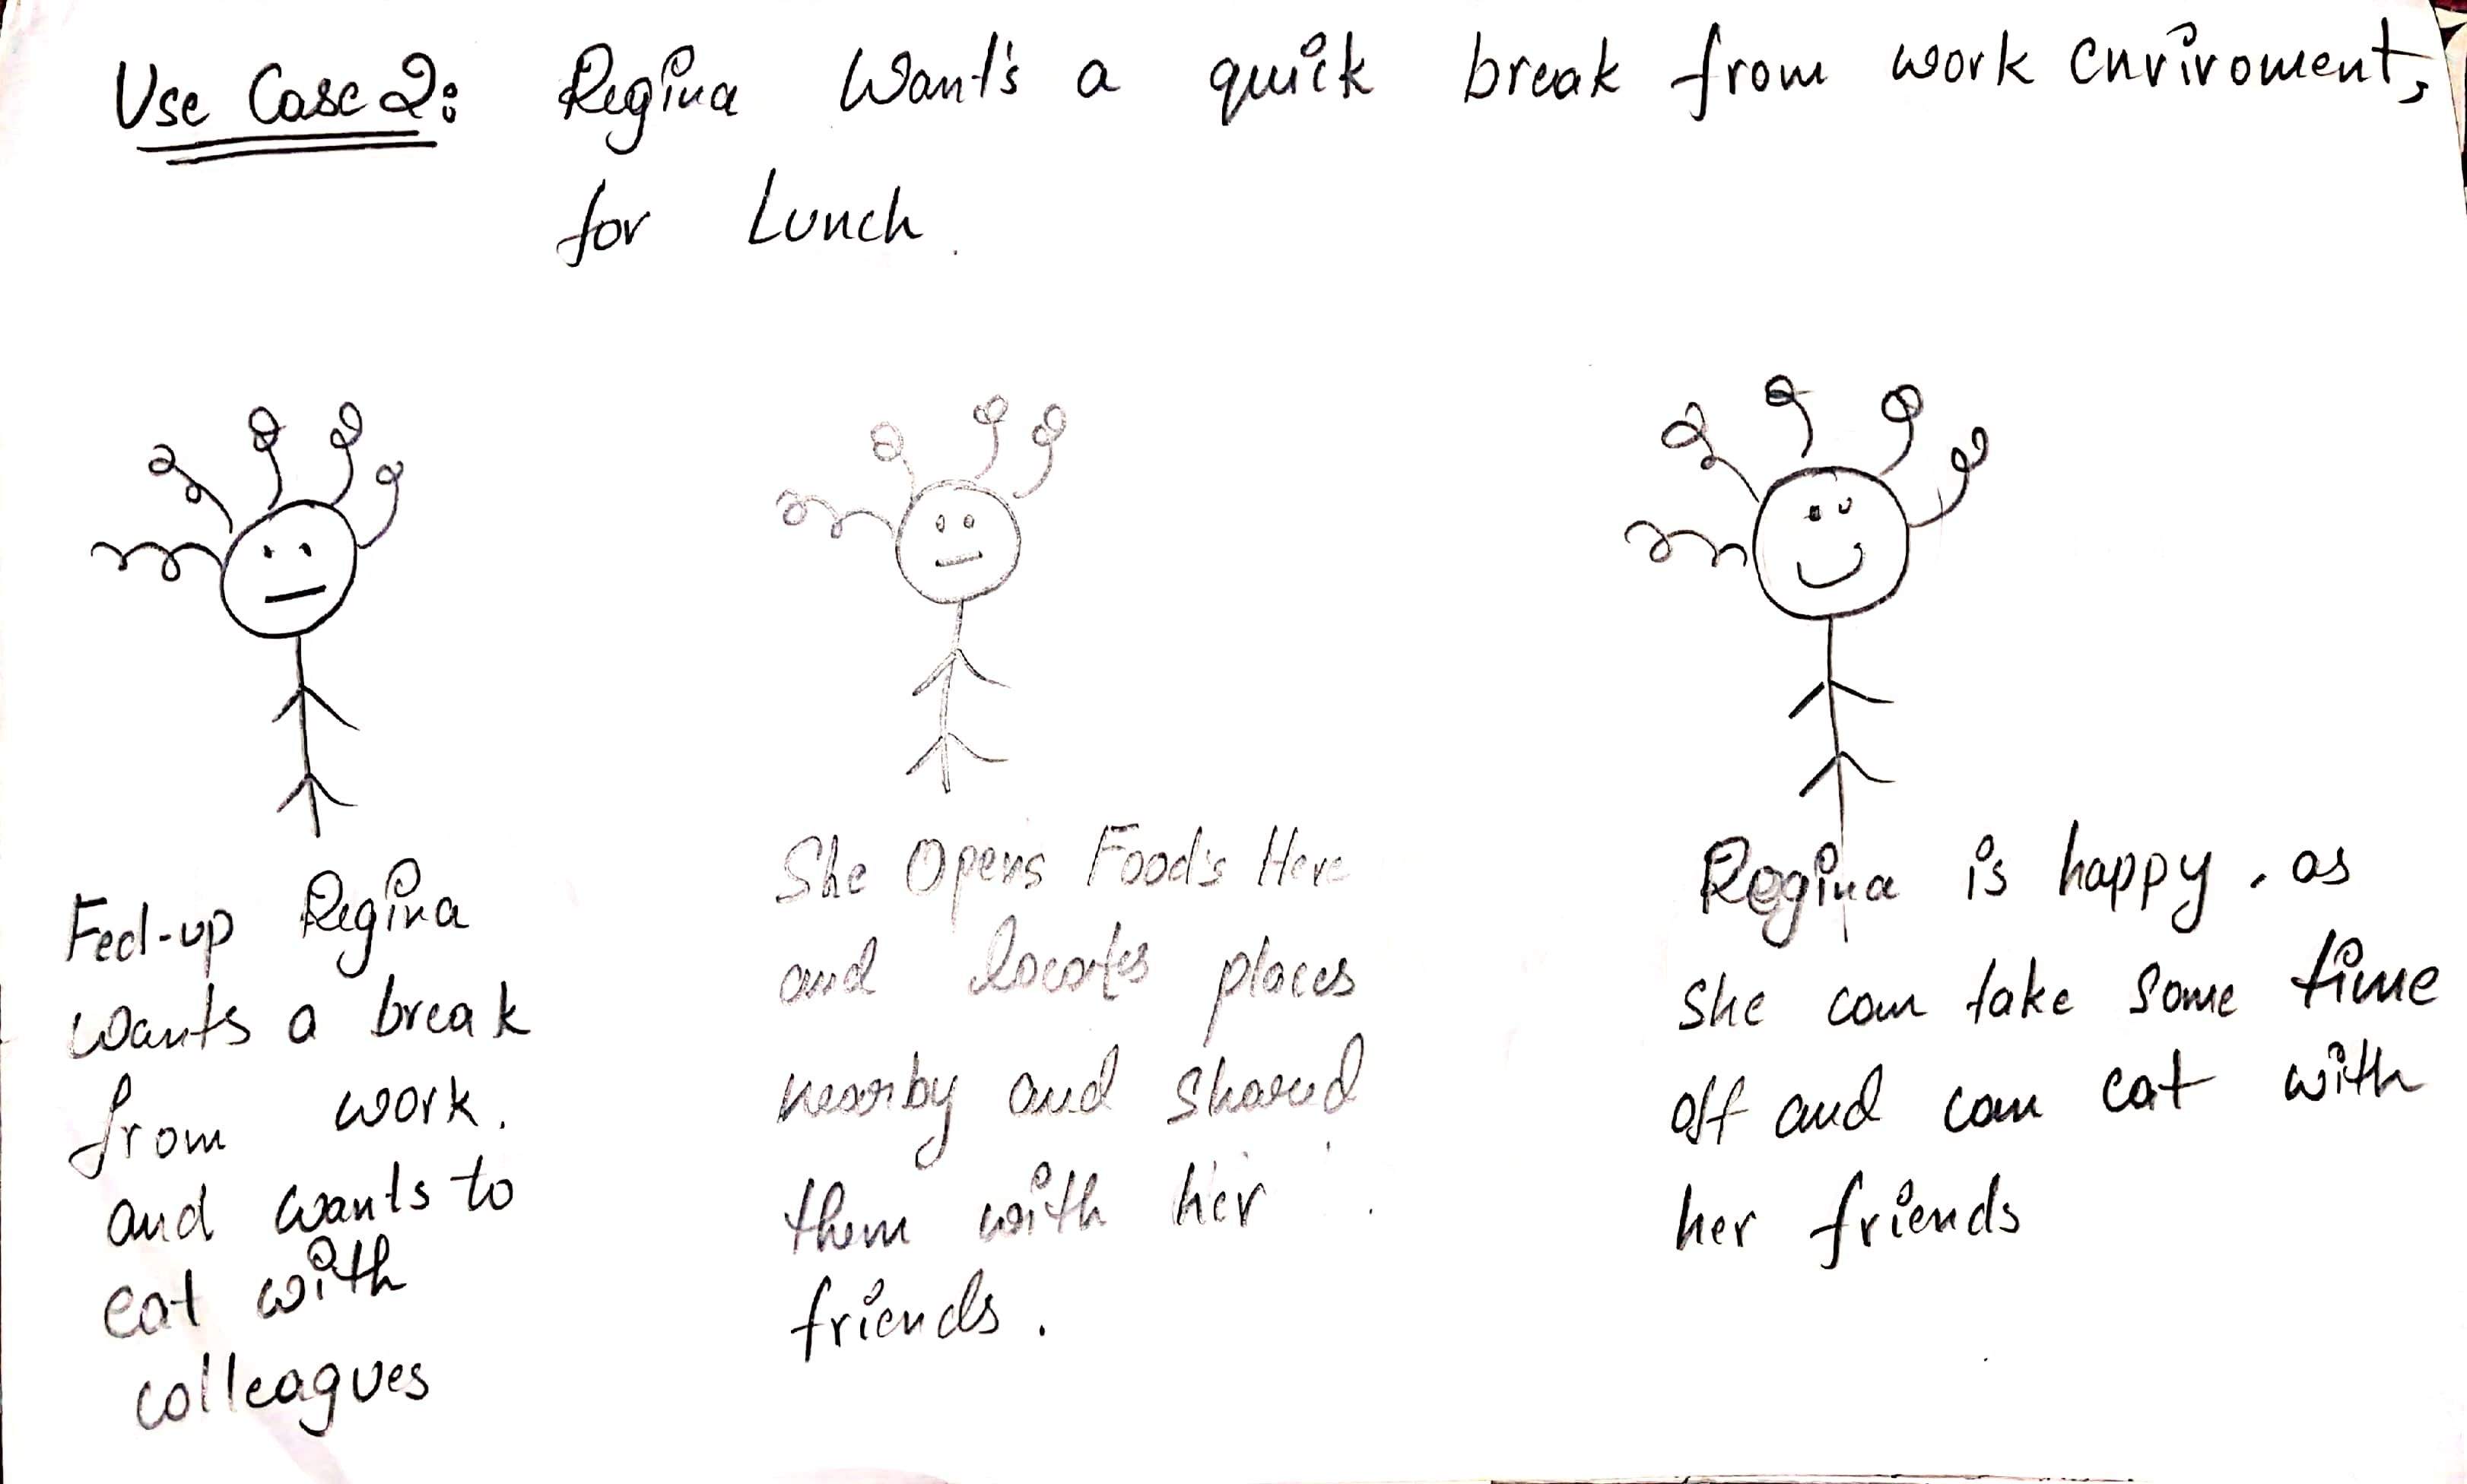 Use Case 2: Regina Want's a quick break from work enviroment,
for Lunch.
Fed-up Regina
wants a break
from work.
and wants to
eat with
colleagues
She Opens Food's Here
and locates places
nearby and shared
them with her
friends.
Regina is happy, as
she can take some time
off and can eat with
her friends